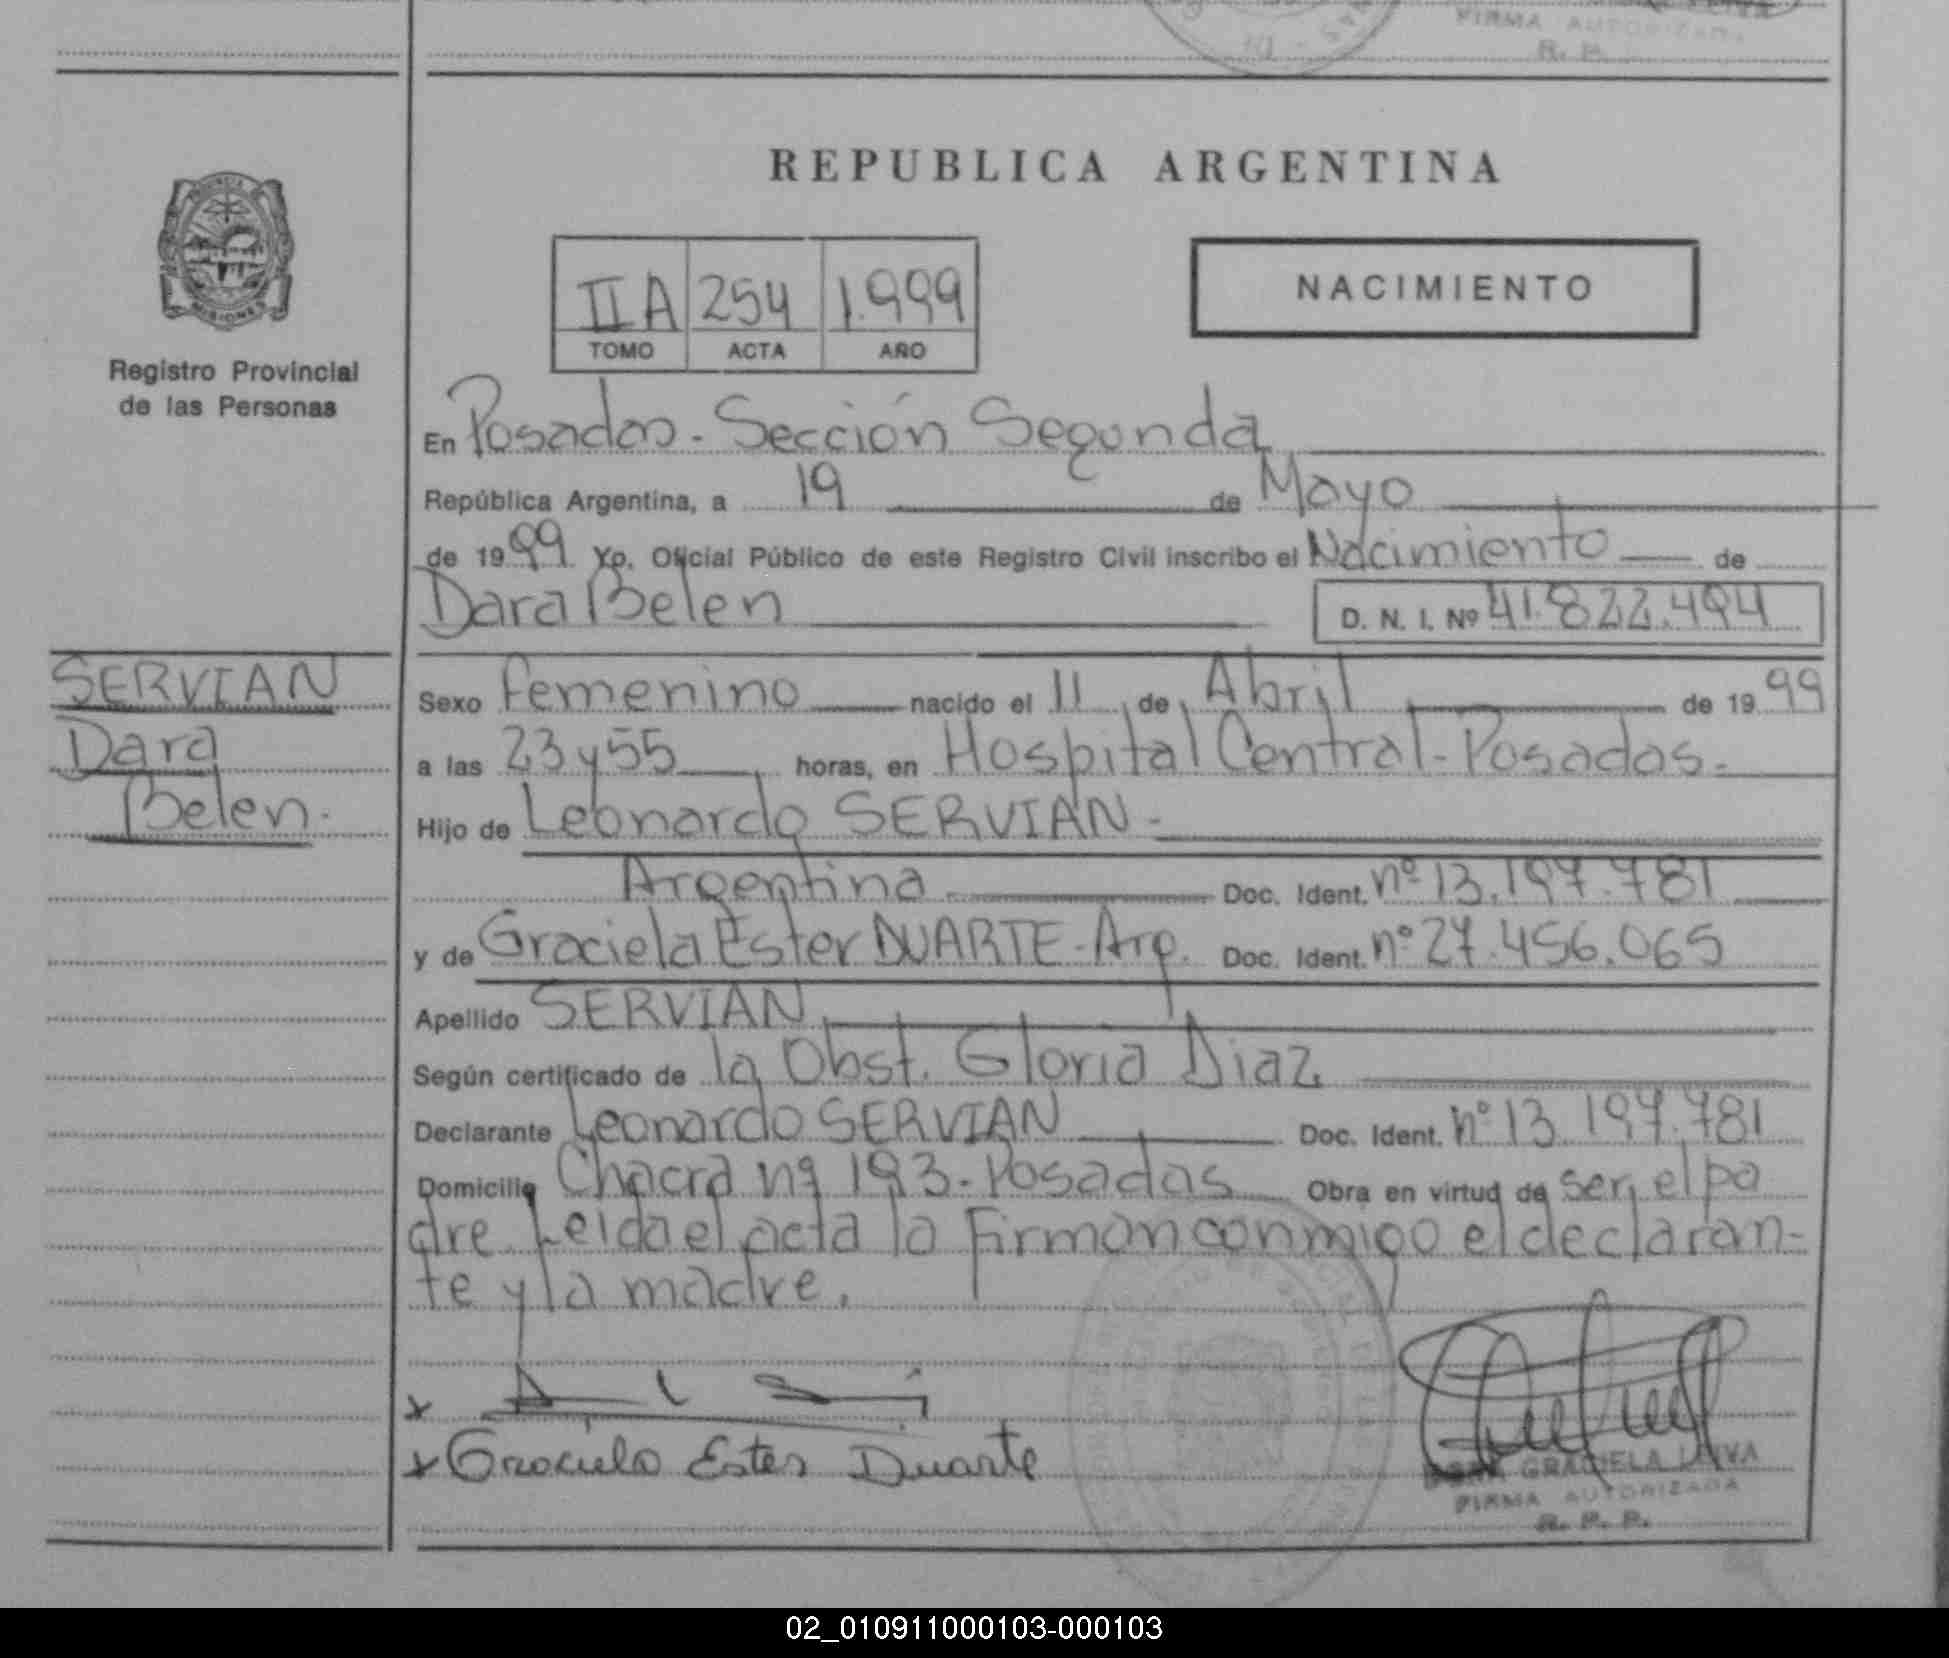 FIRMA AUTORIZADA
R. P.
REPUBLICA ARGENTINA
MISIONES
Registro Provincial
de las Personas
II A 254 1.999
TOMO ACTA AÑO
NACIMIENTO
En Posadas - Sección Segunda
República Argentina, a 19 de Mayo
de 1999 Yo, Oficial Público de este Registro Civil inscribo el Nacimiento de
Dara Belen D. N. I. Nº 41.822.494
SERVIAN
Dara
Belen.
Sexo Femenino nacido el 11 de Abril de 1999
a las 23 y 55 horas, en Hospital Central - Posadas.
Hijo de Leonardo SERVIAN -
Argentina Doc. Ident. nº 13.197.781
y de Graciela Ester DUARTE - Arg. Doc. Ident. nº 27.456.065
Apellido SERVIAN
Según certificado de la Obst. Gloria Diaz
Declarante Leonardo SERVIAN Doc. Ident. nº 13.197.781
Domicilio Chacra nº 193 - Posadas Obra en virtud de ser el pa
dre. Leida el acta la firman conmigo el declaran-
te y la madre.
x
x Graciela Ester Duarte
GRACIELA LEIVA
FIRMA AUTORIZADA
R. P. P.
02_010911000103-000103